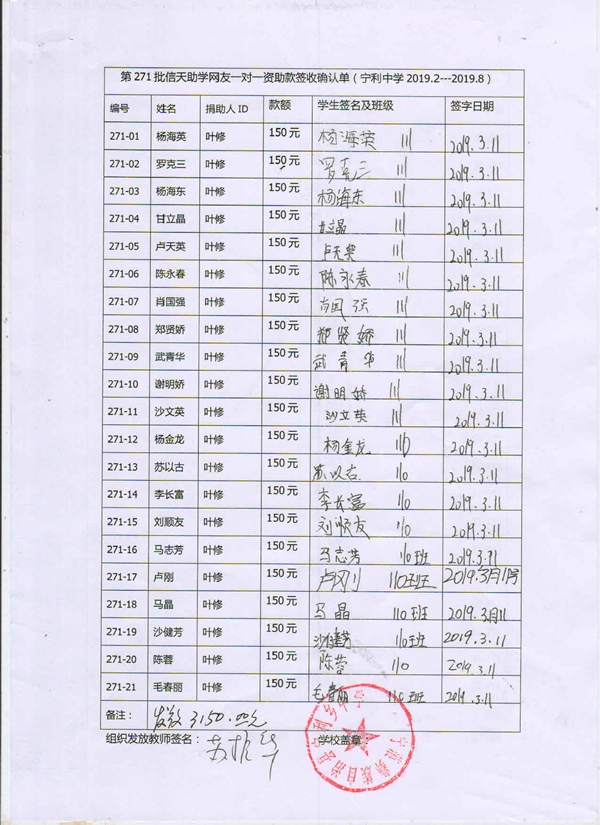 第 271 批信天助学网友一对一资助款签收确认单（宁利中学 2019.2---2019.8）
编号 姓名 捐助人 ID 款额 学生签名及班级 签字日期
271-01 杨海英 叶修 150 元 杨海英 111 2019.3.11
271-02 罗克三 叶修 150 元 罗克三 111 2019.3.11
271-03 杨海东 叶修 150 元 杨海东 111 2019.3.11
271-04 甘立晶 叶修 150 元 甘立晶 111 2019.3.11
271-05 卢天英 叶修 150 元 卢天英 111 2019.3.11
271-06 陈永春 叶修 150 元 陈永春 111 2019.3.11
271-07 肖国强 叶修 150 元 肖国强 111 2019.3.11
271-08 郑贤娇 叶修 150 元 郑贤娇 111 2019.3.11
271-09 武青华 叶修 150 元 武青华 111 2019.3.11
271-10 谢明娇 叶修 150 元 谢明娇 111 2019.3.11
271-11 沙文英 叶修 150 元 沙文英 111 2019.3.11
271-12 杨金龙 叶修 150 元 杨金龙 110 2019.3.11
271-13 苏以古 叶修 150 元 苏以古 110 2019.3.11
271-14 李长富 叶修 150 元 李长富 110 2019.3.11
271-15 刘顺友 叶修 150 元 刘顺友 110 2019.3.11
271-16 马志芳 叶修 150 元 马志芳 110班 2019.3.11
271-17 卢刚 叶修 150 元 卢刚 110班班 2019.3月11号
271-18 马晶 叶修 150 元 马晶 110班 2019.3月11
271-19 沙健芳 叶修 150 元 沙健芳 110班 2019.3.11
271-20 陈蓉 叶修 150 元 陈蓉 110 2019.3.11
271-21 毛春丽 叶修 150 元 毛春丽 110班 2019.3.11
备注： 发放 3150.00元
组织发放教师签名： 学校盖章：